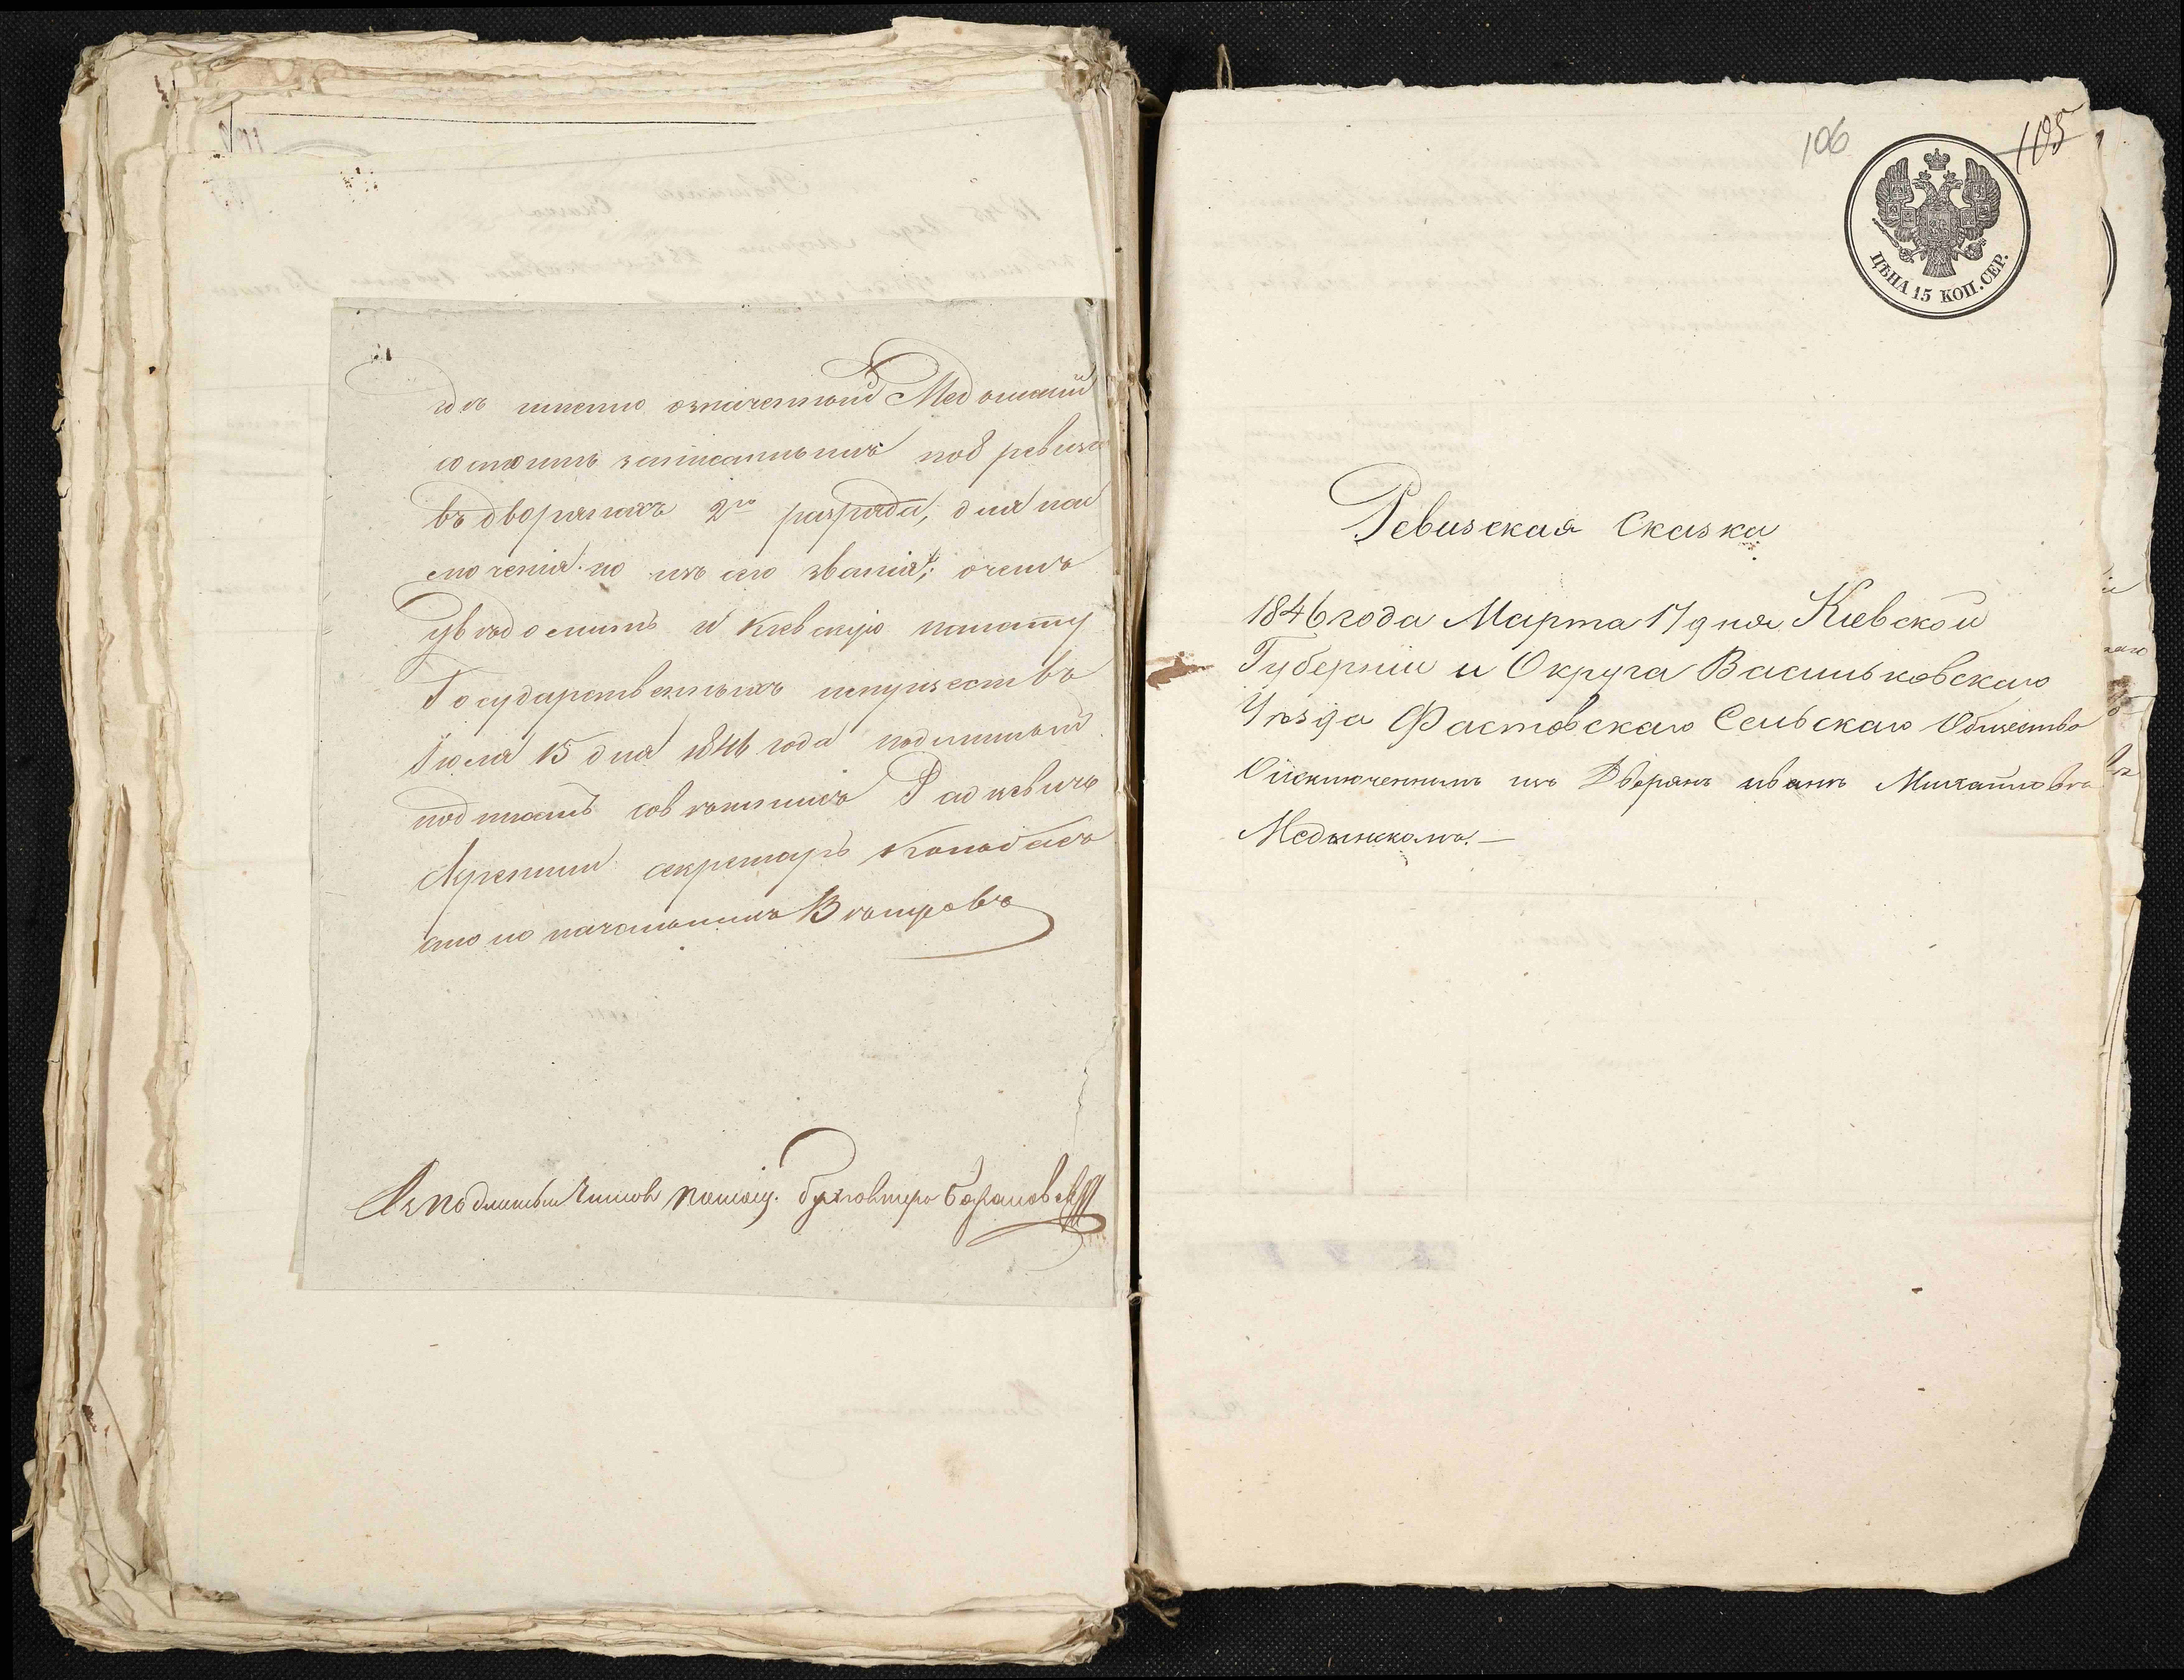 гдѣ именно означенный Медынскiй
состоитъ записаннымъ под ревизiю
въ дворянахъ 2го разряда, для ис
ключенiя его изъ сего званiя; о чемъ
увѣдомить и Кiевскую палату
Государственныхъ имуществъ
Iюля 15 дня 1846 года подлинный
подписалъ совѣтникъ
Скрепили секретарь
столоначальникъ Вѣтровъ
Съ подлиннымъ читалъ помощ. бухгалтера Барановскiй
106
105
ЦѢНА 15 КОП. СЕР.
Ревизская Сказка
1846 года Марта 17 дня Кiевской
Губернiи и Округа Васильковскаго
Уѣзда Фастовскаго Сельскаго Общества
О исключенномъ изъ Дворянъ иванѣ Михайловѣ
Медынскомъ. —